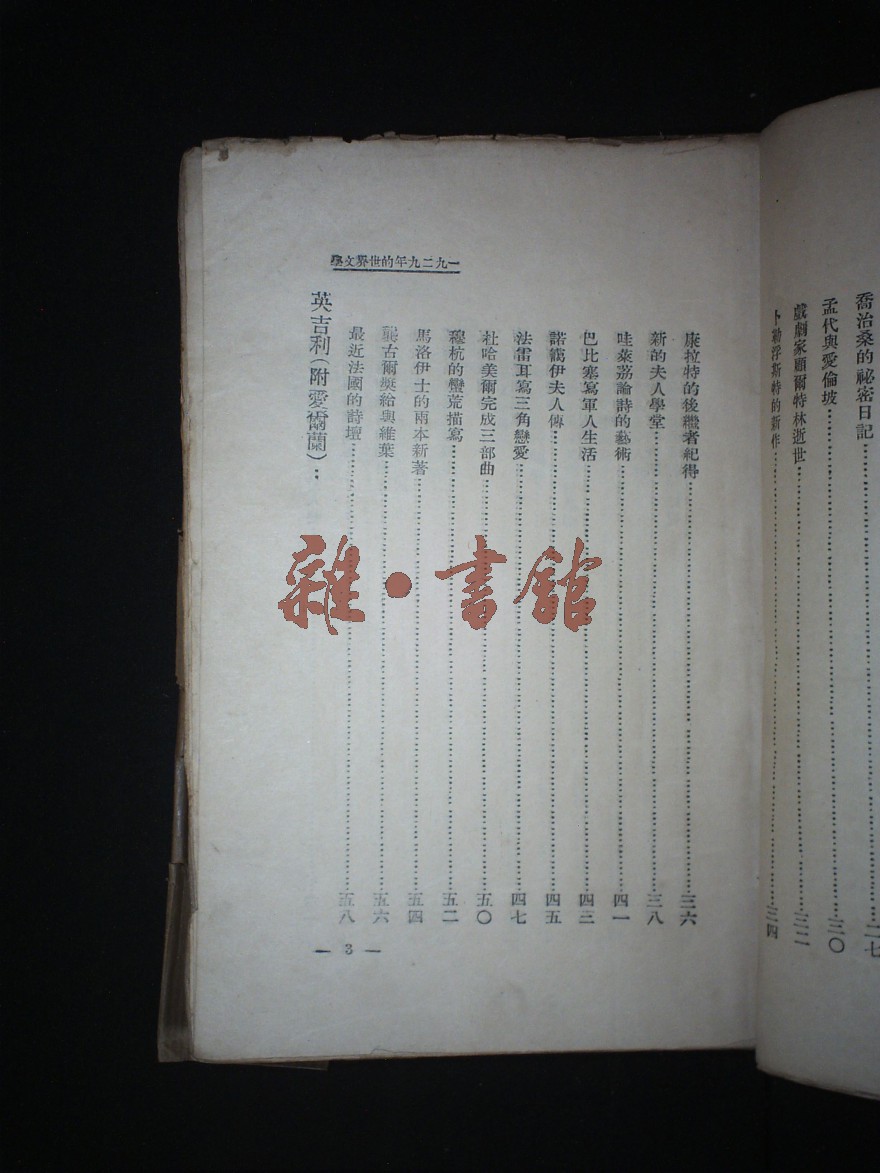 喬治桑的祕密日記……二七
孟代與愛倫坡……三〇
戲劇家顧爾特林逝世……三二
卜勒浮斯特的新作……三四
一九二九年的世界文學
康拉特的後繼者紀得……三六
新的夫人學堂……三八
哇萊荔論詩的藝術……四一
巴比塞寫軍人生活……四三
諾藹伊夫人傳……四五
法雷耳寫三角戀愛……四七
杜哈美爾完成三部曲……五〇
穆杭的蠻荒描寫……五二
馬洛伊士的兩本新著……五四
龔古爾獎給與維葉……五六
最近法國的詩壇……五八
英吉利(附愛爾蘭):
— 3 —
雜·書館